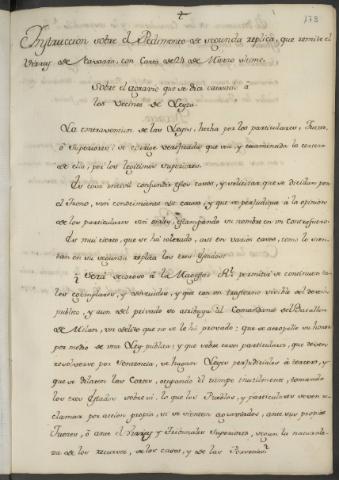 178
Instruccion sobre el Pedimento de segunda replica, que remite el
Virrey de Navarra, con Carta de 24 de Marzo ultimo.
Sobre el agravio que se dice causado a
los Vecinos de
La contravencion de las Leyes, hecha por los particulares, Jueces,
ó Superiores: se corrige verificado que sea, y examinada la certeza
de ella, por los legitimos Superiores.
Es cosa mui confundir estos casos, y solicitar que se decidan por
el Reino, sin conocimiento de causa, y que se perjudique a la opinion
de los particulares sin oirles, estampando su nombre en un Contrafuero.
Es mui cierto, que se ha tolerado, assi en varios casos, como lo sien-
tan en su segunda replica los tres Estados.
Será decoroso a la Magestad Rl. permitir se continuen ta-
les exemplares, y abusos, y que con un trastorno visible del derecho
publico, y aun del privado se atribuya al Comandante del Batallon
de Milan, un delito que no se le ha provado: que se atropelle su honor
por medio de una Ley publica: y que sobre casos particulares, que deven
resolverse por Sentencia, se hagan Leyes perjudiciales à terceros, y
que se dilaten las Cortes, ocupando el tiempo inutilmente, tomando
los tres Estados sobre si, lo que los Pueblos, y particulares deven re-
clamar por accion propia, si se sienten agraviados, ante sus propios
Jueces, ó ante el Virrey y Tribunales Superiores, segun la naturale-
za de los recursos, de los casos, y de las Personas?